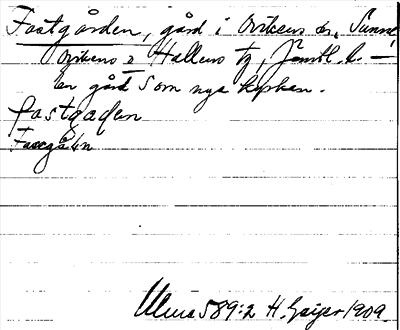 Fastgården, gård i Ovikens sn, Sunne,
Ovikens o Hallens tg, Jämtl. l. —
är gård som nya kyrkan.
fastgaden
Ulma 589:2 H. Geijer 1909